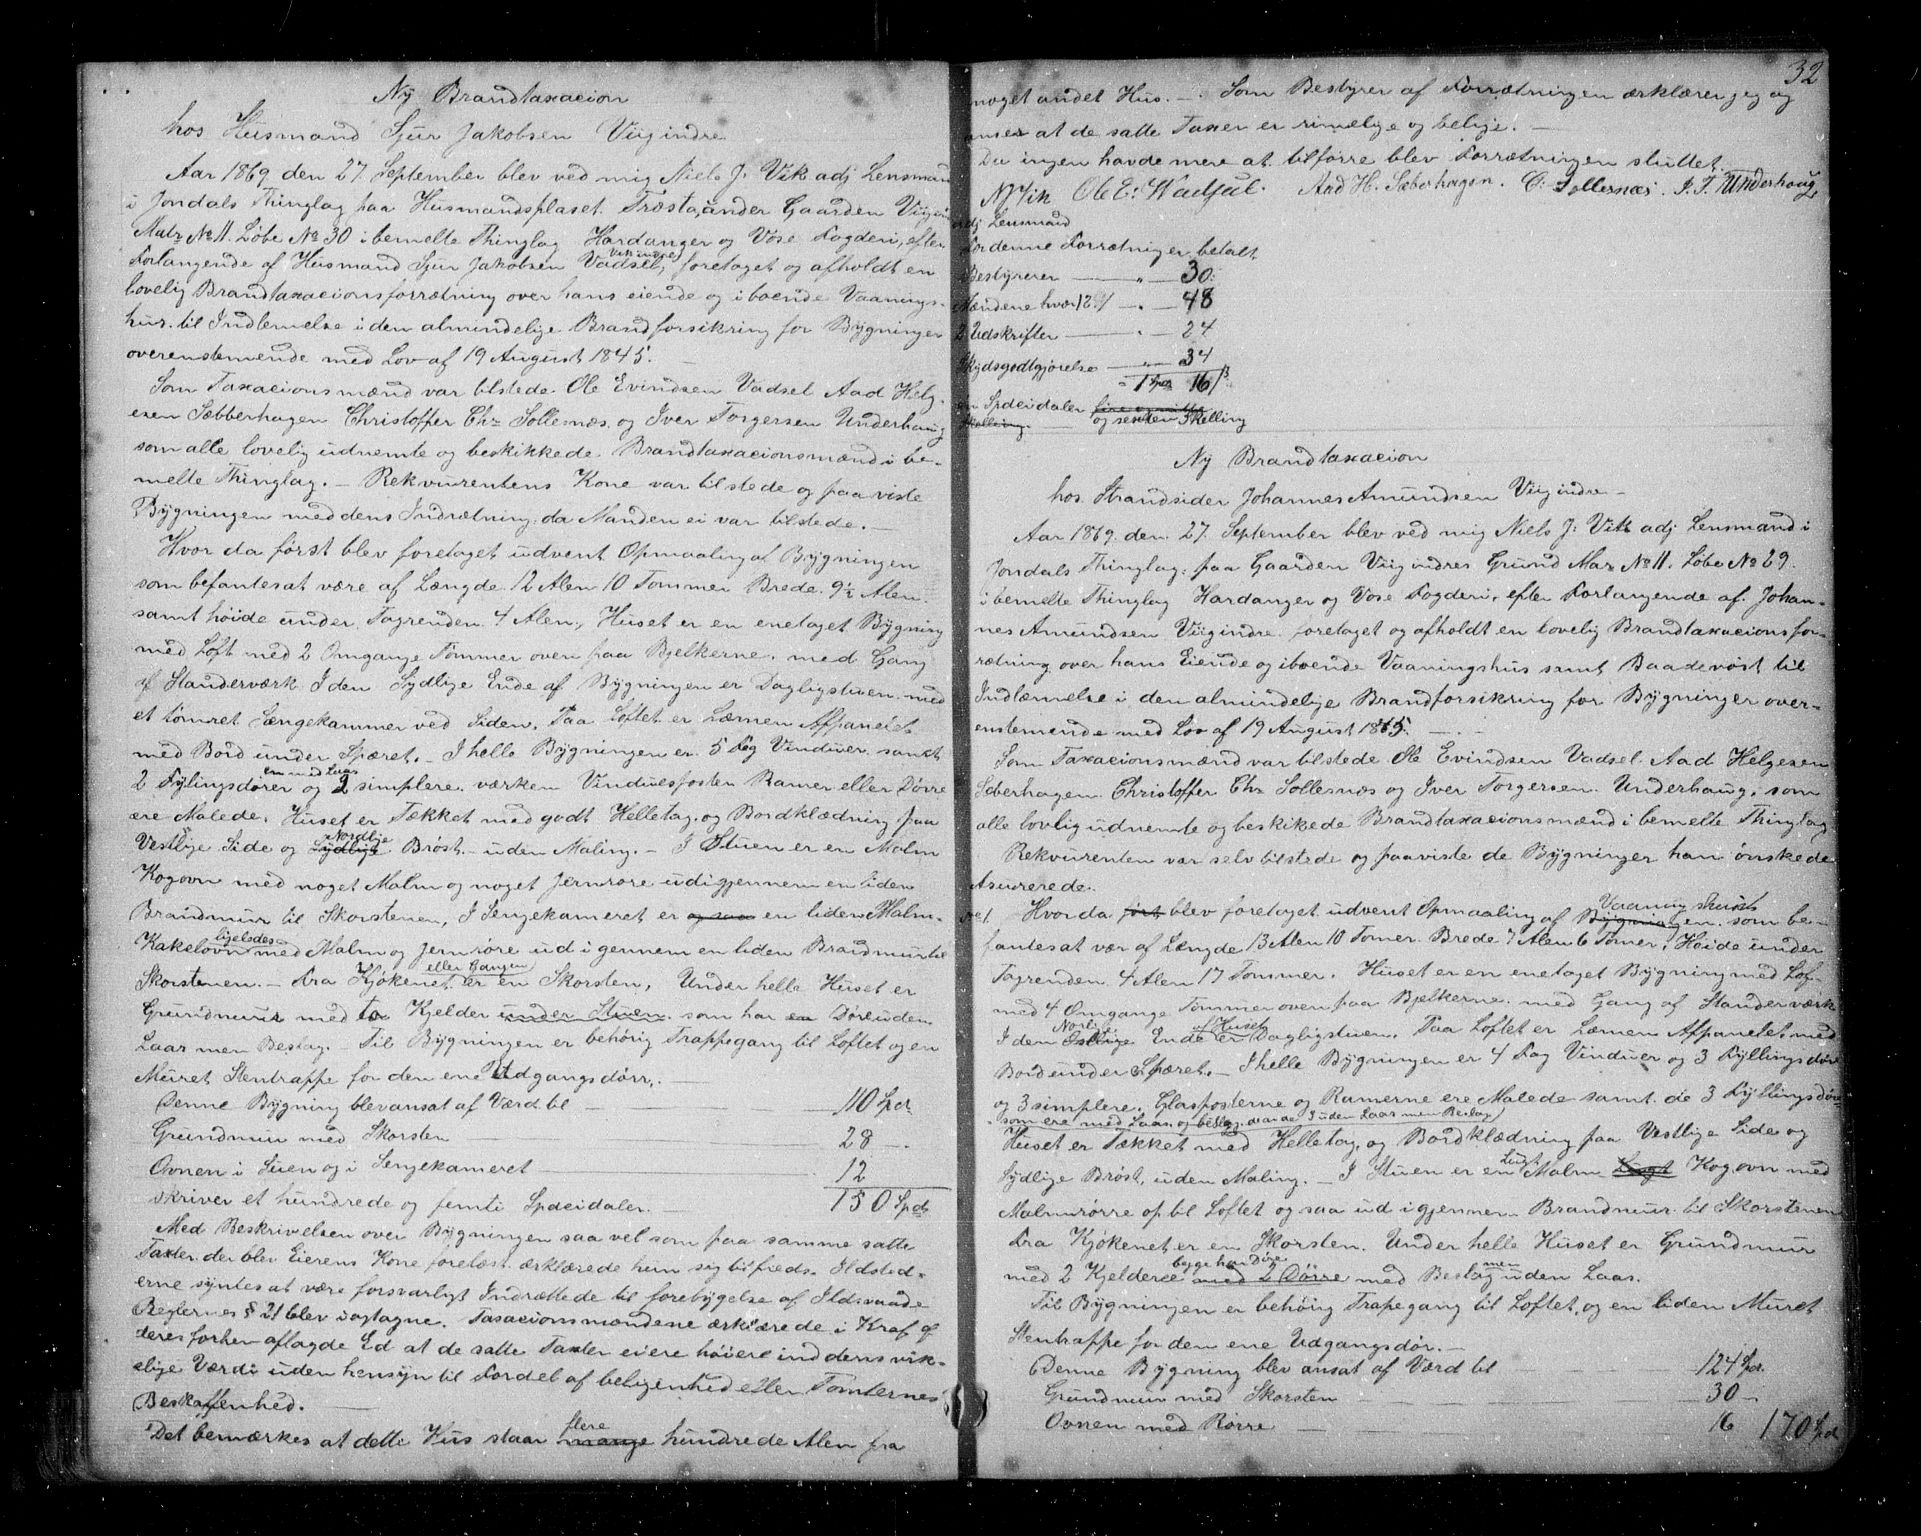 Ny Brandtaxacion
hos Husmand Sjur Jakobsen Viigindre
Aar 1869 den 27. September blev ved mig Niels J. Vik adj Lensmand
i Jondals Thinglag paa Husmandsplaset Træsta, under Gaarden Viigindre
Matr No 11. Løbe No 30 i bemelte Thinglag Hardanger og Vose Fogderi, efter
Forlangende af Husmand Sjur Jakobsen Vadsel, Vikindre foretaget og afholdt en
lovelig Brandtaxacionsforrætning over hans eiende og iboende Vaanings-
hus til Indlemelse i den almindelige Brandforsikring for Bygninger
overenstemende med Lov af 19 August 1845. —
Som Taxacionsmænd var tilstede Ole Evindsen Vadsel Aad Helg-
esen Sæbberhagen Christoffer Chr Sollesnæs og Iver Torgersen Underhaug
som alle lovelig udnemte og beskikkede Brandtaxacionsmænd i be-
melte Thinglag. — Rekvurentens Kone var tilstede og paaviste
Bygningen med dens Indrætning, da Manden ei var tilstede. —
Hvor da først blev foretaget udvent Opmaaling af Bygningen
som befantes at være af Længde 12 Alen 10 Tommer Brede 9½ Alen
samt høide under Tagrenden 4 Alen, Huset er en enetaget Bygning
med Loft med 2 Omgange Tømmer oven paa Bjelkerne. med Gang
af Standerværk I den Sydlige Ende af Bygningen er Dagligstuen med
et tømret Sængekammer ved Siden. Paa Loftet er Læmen Afpanelet
med Bord under Spæret. — I helle Bygningen er 5 Fag Vinduer, samt
2 Fylingsdører en med Laas og 2 simplere, værken Vinduesposten Ramer eller Dørre
ere Malede, Huset er Tækket med godt Helletag, og Bordklædning paa
Vestlige Side og Sydlige Nordlige Brøst — uden Maling. — I Stuen er en Malm
Kogovn med noget Malm og noget Jernrøre ud igjennem en liden
Brandmur til Skorstenen, I Sengekameret er og saa en liden Malm-
Kakelovn ligeledes med Malm og Jernrøre ud igennem en liden Brandmur til
Skorstenen. — Fra Kjøkenet eller Gangen er en Skorsten, Under helle Huset er
Grundmuur med to Kjelder under Stuen som har en Døre uden
Laas men Beslag. — Til Bygningen er behørig Trappegang til Loftet og en
Muret Stentrappe for den ene Udgangsdørr. —
Denne Bygning blev ansat af Værd til — 110 Spd
Grundmuur med Skorsten — 28 —
Ovnen i Stuen og i Sengekameret — 12
skriver et hundrede og femti Spdeidaler. — 150 Spd
Med Beskrivelsen over Bygningen saa vel som paa samme satte
Taxter der blev Eierens Kone forelæst ærklærede hun sig tilfreds. Ildsted-
erne syntes at være forsvarligt Indrættede til forebygelse af Ildsvaade
Reglernes § 21 blev iagtagne. Taxacionsmændene ærklærede i Kraf af
deres forhen aflagde Ed at de satte Taxter ei ere høiere ind dens vik-
elige Værdi uden hensyn til Fordel af beligenhed eller Tomternes
Beskaffenhed. —
Det bemærkes at dette Hus staar mange flere hundrede Alen fra
32
noget andet Hus. — Som Bestyrer af Forrætningen ærklærer jeg og
anser at de satte Taxer er rimelige og belige. —
Da ingen havde mere at tilførre blev Forrætningen sluttet.
N J Vik Ole E. Wadsæl. Aad H. Sæberhagen. C. Sollesnæs. I. T. Underhaug
adj Lensmand
For denne Forrætning er betalt
Bestyrerer — " — 30
Mændene hver 12 β — " — 48
2 Udskrifter — " — 24
Skydsgodtgjørelse — " — 34
" 1 Spd 16 β
en Spdeidaler og sexten Skelling
Skelling.
Ny Brandtaxacion
hos Strandsider Johannes Amundsen Viigindre —
Aar 1869. den 27. September blev ved mig Niels J. Vik adj Lensmand i
Jondals Thinglag, paa Gaarden Viigindres Grund Mar No 11. Løbe No 29.
i bemelte Thinglag Hardanger og Vose Fogderi, efter Forlangende af Johan-
nes Amundsen Viigindre foretaget og afholdt en lovelig Brandtaxacionsfor-
rætning over hans Eiende og iboende Vaaningshus samt Baadenøst til
Indlæmelse i den almindelige Brandforsikring for Bygninger over-
enstemende med Lov af 19 August 1845. —
Som Taxacionsmænd var tilstede Ole Evindsen Vadsel. Aad Helgesen
Sæberhagen. Christoffer Chr Sollesnæs og Iver Torgersen Underhaug, som
alle lovlig udnemte og beskikede Brandtaxacionsmænd i bemelte Thinglag
Rekvurenten var selv tilstede og paaviste de Bygninger han ønskede
Asurerede.
No 1. Hvor da ført blev foretaget udvent Opmaaling af Bygningen Vaaningshuset som be-
fantes at vær af Længde 13 Alen 10 Tomer. Brede 7 Alen 6 Tomer, Høide under
Tagrenden 4 Alen 17 Tommer. Huset er en enetaget Bygning med Lof
med 4 Omgange Tømmer oven paa Bjelkerne. med Gang af Standerværk
I den Østlige Norli Ende af Huset er Dagligstuen. Paa Loftet er Læmen Afpanelet med
Bord under Spæret. — I helle Bygningen er 4 Fag Vinduer og 3 Fyllingsdøre
og 3 simplere, Glasposterne og Ramerne ere Malede samt de 3 Fyllingsdøre
som ere med Laas og beslag, de andre 3 uden Laas men Beslag
Huset er Tækket med Helletag, og Bordklædning paa Vestlige Side og
Sydlige Brøst, uden Maling. — I Stuen er en Lugt Malm Lugt Kogovn med
Malmrørre op til Loftet og saa ud igjennem Brandmur til Skorstenen
Fra Kjøkenet er en Skorsten. Under helle Huset er Grundmuur
med 2 Kjeldere begge har Døre med 2 Dørre med Beslag men uden Laas.
Til Bygningen er behørig Trapegang til Loftet, og en liden Muret
Stentrappe for den ene Udgangsdør. —
Denne Bygning blev ansat af Værd til — 124 Spd.
Grundmuur med Skorsten — 30 —
Ovnen med Rørre — 16 170 Spd